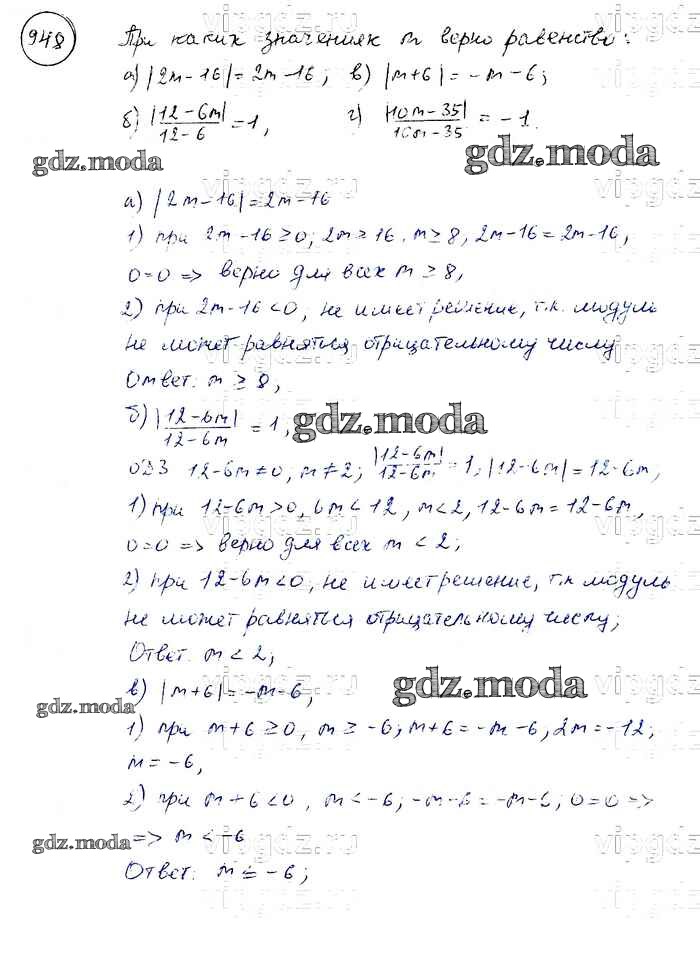 948 При каких значениях m верно равенство:
а) |2m-16| = 2m-16; в) |m+6| = -m-6;
б) |12-6m|/12-6 = 1, г) |10m-35|/10m-35 = -1.
gdz.moda gdz.moda
vipgdz.ru vipgdz
а) |2m-16| = 2m-16
1) при 2m-16 ≥ 0; 2m ≥ 16, m ≥ 8, 2m-16 = 2m-16,
0=0 => верно для всех m ≥ 8,
2) при 2m-16 < 0, не имеет решение, т.к. модуль
не может равняться отрицательному числу
Ответ: m ≥ 8,
б) |12-6m|/12-6m = 1, gdz.moda
ОДЗ 12-6m ≠ 0, m ≠ 2; |12-6m|/12-6m = 1, |12-6m| = 12-6m,
1) при 12-6m > 0, 6m < 12, m < 2, 12-6m = 12-6m,
0=0 => верно для всех m < 2;
2) при 12-6m < 0, не имеет решение, т.к модуль
не может равняться отрицательному числу;
Ответ. m < 2;
в) |m+6| = -m-6, gdz.moda
gdz.moda
1) при m+6 ≥ 0, m ≥ -6; m+6 = -m-6, 2m = -12;
m = -6,
2) при m+6 < 0, m < -6; -m-6 = -m-6; 0=0 =>
gdz.moda => m < -6
Ответ: m ≤ -6;